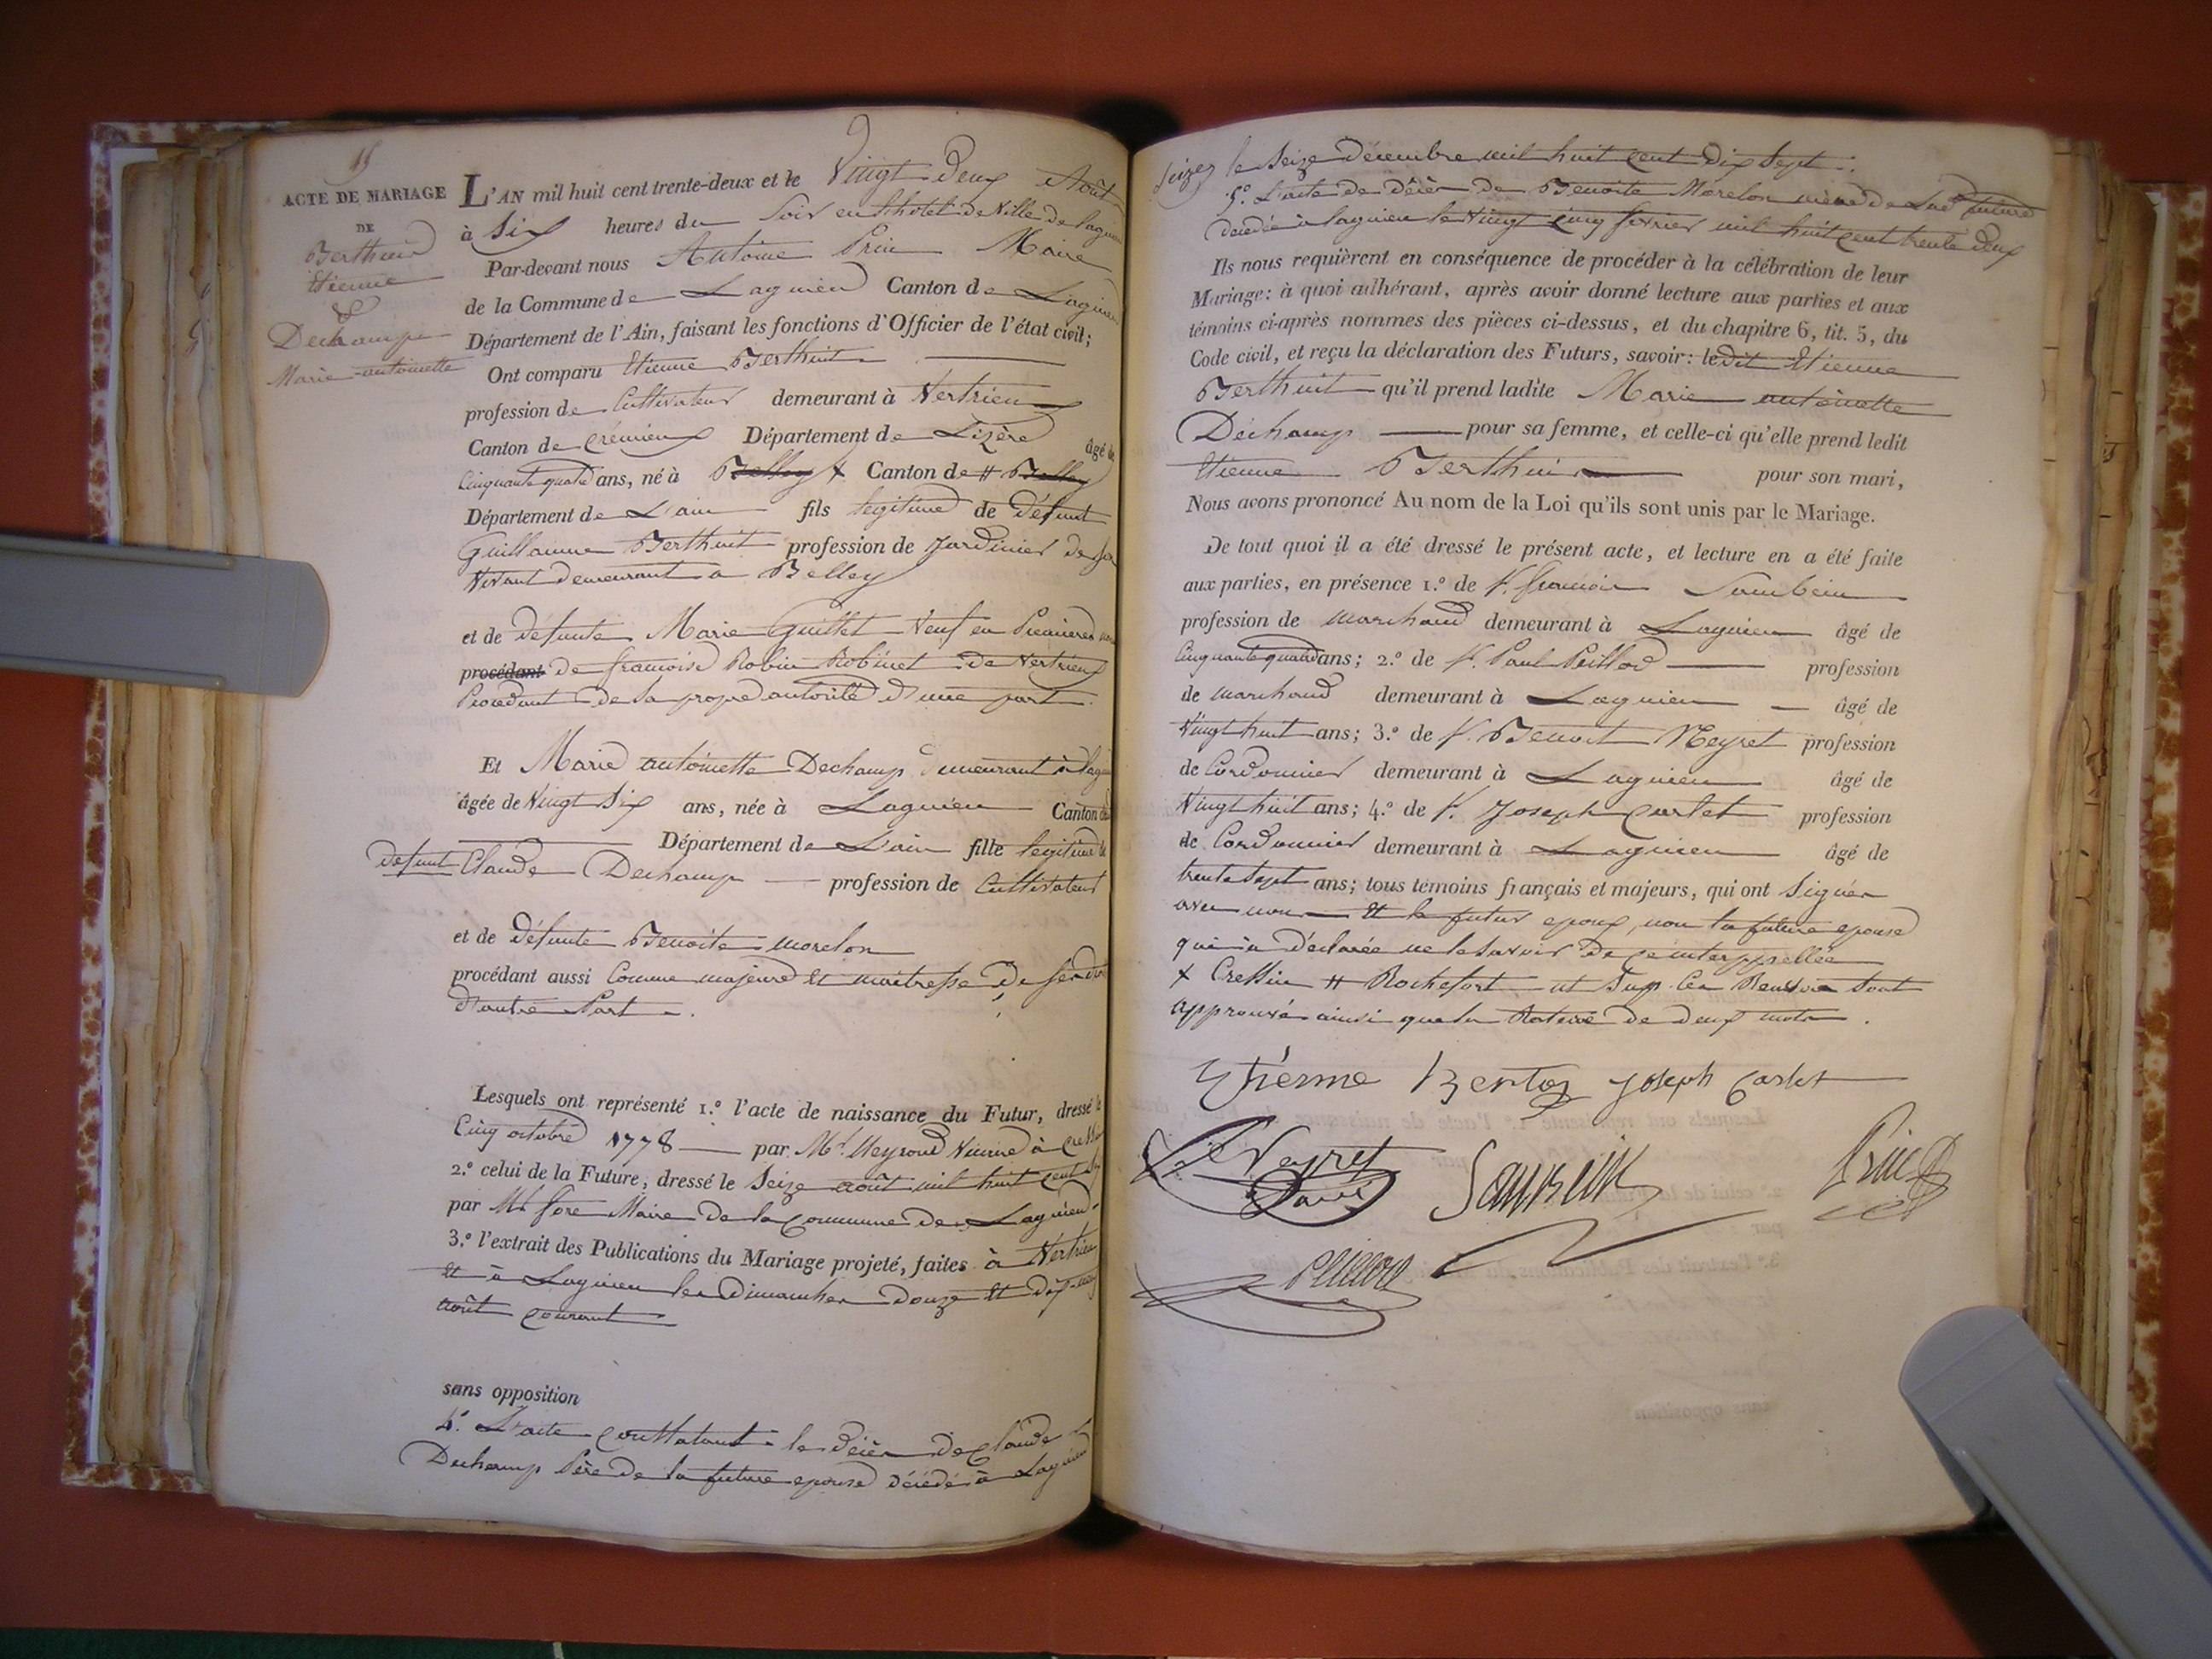 15
ACTE DE MARIAGE
DE
Berthuit
Etienne
&
Dechamp
Marie-antoinette
L'AN mil huit cent trente-deux et le Vingt Deux Août
à Six heures du Soir en l'hotel de Ville de Lagnieu
Par-devant nous Antoine Prin Maire
de la Commune de Lagnieu Canton de Lagnieu
Département de l'Ain, faisant les fonctions d'Officier de l'état civil;
Ont comparu Etienne Berthuit
profession de Cultivateur demeurant à Vertrieu
Canton de Crémieux Département de L'izère âgé de
Cinquante quatre ans, né à Belley + Canton de # Belley
Département de L'ain fils legitime de Défunt
Guillaume Berthuit profession de Jardinier de son
Vivant demeurant a Belley
et de défunte Marie Guillet Veuf en Premieres
procédant de francoise Robin Robinet de Vertrieux
Procedant de sa propre autorité d'une part.
Et Marie antoinette Dechamp demeurant à Lagnieu
âgée de Vingt Six ans, née à Lagnieu Canton de
Département de L'ain fille legitime de
defunt Claude Dechamp profession de Cultivateur
et de défunte Benoite morelon
procédant aussi Comme majeure et maitresse de ses droits
D'autre Part.
Lesquels ont représenté 1.º l'acte de naissance du Futur, dressé le
Cinq octobre 1778 par Mr. Vicaire à Cressin
2.º celui de la Future, dressé le Seize août mil huit Cent Six
par Mr fore Maire de la Commune de Lagnieu.
3.º l'extrait des Publications du Mariage projeté, faites à Vertrieu
et à Lagnieu les Dimanches Douze et dix-neuf
août Courant
sans opposition
4.º L'acte Constatant le décès de Claude
Dechamp Père de la future epouse décédé à Lagnieu
le Seize décembre mil huit Cent Dix Sept.
5.º L'acte de décès de Benoite Morelon mère de Lade future
décédée à Lagnieu le Vingt Cinq fevrier mil huit Cent trente Deux
Ils nous requièrent en conséquence de procéder à la célébration de leur
Mariage: à quoi adhérant, après avoir donné lecture aux parties et aux
témoins ci-après nommes des pièces ci-dessus, et du chapitre 6, tit. 5, du
Code civil, et reçu la déclaration des Futurs, savoir: ledit Etienne
Berthuit qu'il prend ladite Marie antoinette
Déchamp pour sa femme, et celle-ci qu'elle prend ledit
Etienne Berthuit pour son mari,
Nous avons prononcé Au nom de la Loi qu'ils sont unis par le Mariage.
De tout quoi il a été dressé le présent acte, et lecture en a été faite
aux parties, en présence 1.º de Sr. francois Sambein
profession de marchand demeurant à Lagnieu âgé de
Cinquante quatre ans; 2.º de Sr. Paul Peillod profession
de marchand demeurant à Lagnieu âgé de
Vingt huit ans; 3.º de Sr. Benoit Neyret profession
de Cordonnier demeurant à Lagnieu âgé de
Vingt huit ans; 4.º de Sr. Joseph Carlet profession
de Cordonnier demeurant à Lagnieu âgé de
trente Sept ans; tous témoins français et majeurs, qui ont Signés
avec nous Et le futur epoux, non la future epouse
qui a déclarée ne le Savoir de ce interppellée
+ Cressin # Rochefort ut Sup. Ces Renvois Sont
approuvés ainsi que la Rature de deux mots.
Etienne Joseph Carlet
Neyret
Prin